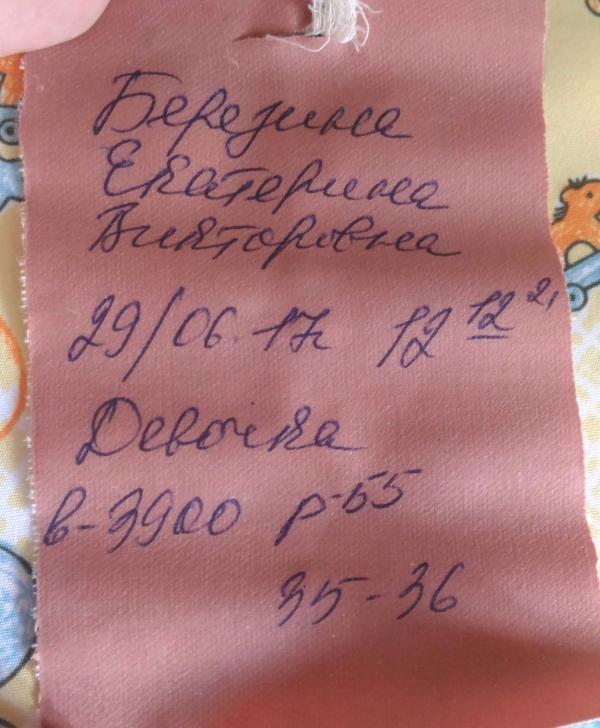 Березина
Екатерина
Викторовна
29/06.17г 12 12
Девочка
в-3900 р-55
35-36